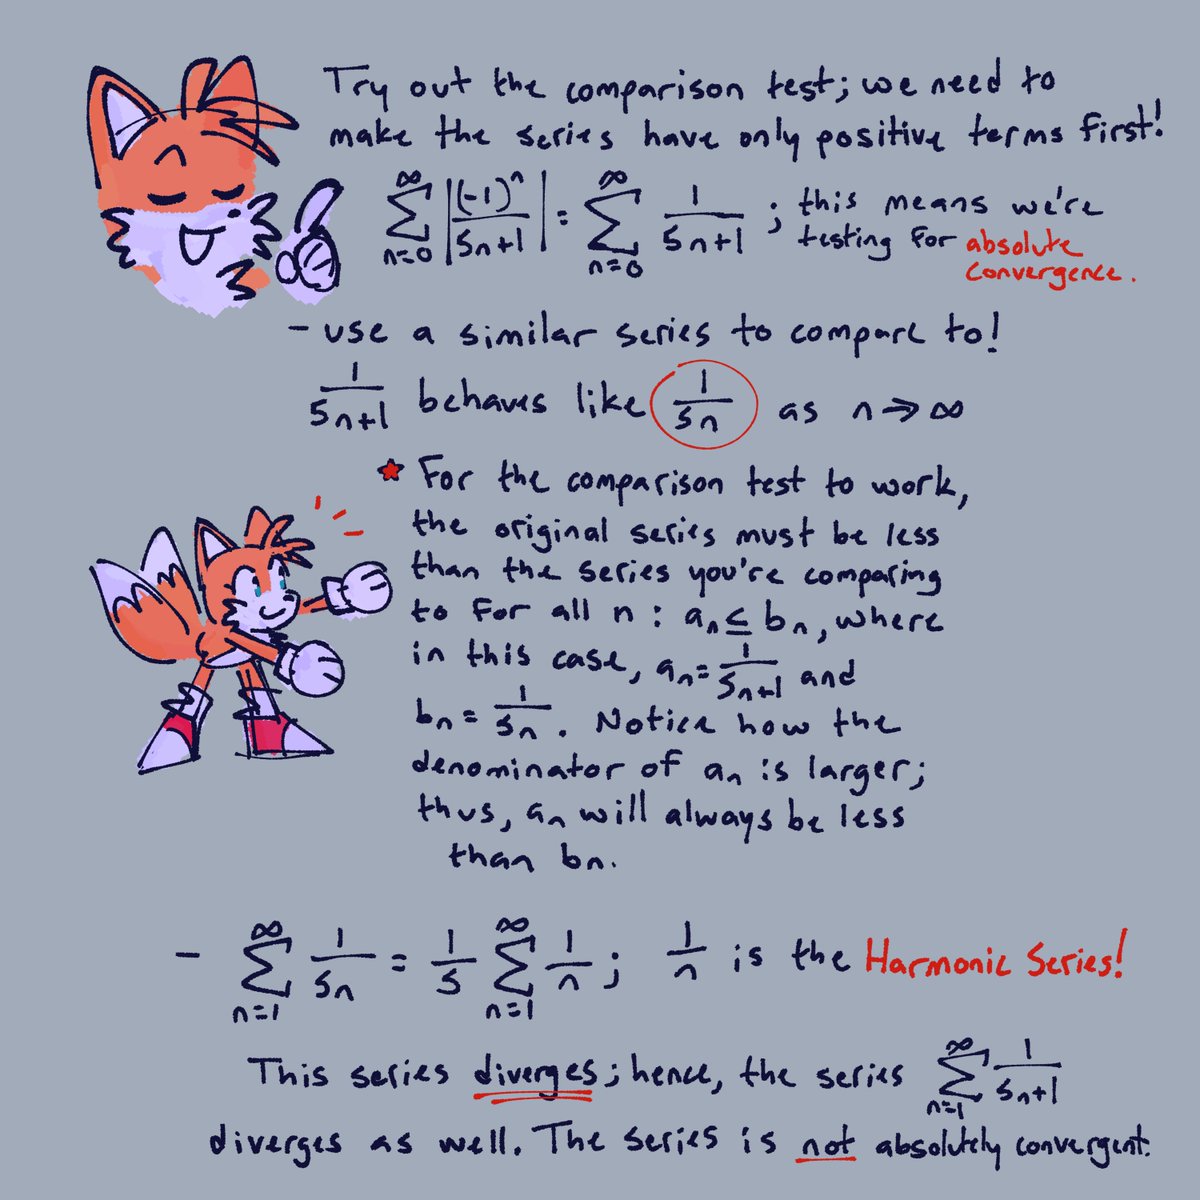 Try out the comparison test; we need to
make the series have only positive terms first!
∞∑n=0 |(-1)ⁿ/5n+1| = ∞∑n=0 1/5n+1 ; this means we're
testing for absolute
convergence.
- use a similar series to compare to!
1/5n+1 behaves like 1/5n as n→∞
★ For the comparison test to work,
the original series must be less
than the series you're comparing
to for all n : aₙ ≤ bₙ, where
in this case, aₙ = 1/5n+1 and
bₙ = 1/5n . Notice how the
denominator of aₙ is larger;
thus, aₙ will always be less
than bₙ.
- ∞∑n=1 1/5n = 1/5 ∞∑n=1 1/n ; 1/n is the Harmonic Series!
This series diverges; hence, the series ∞∑n=1 1/5n+1
diverges as well. The series is not absolutely convergent.